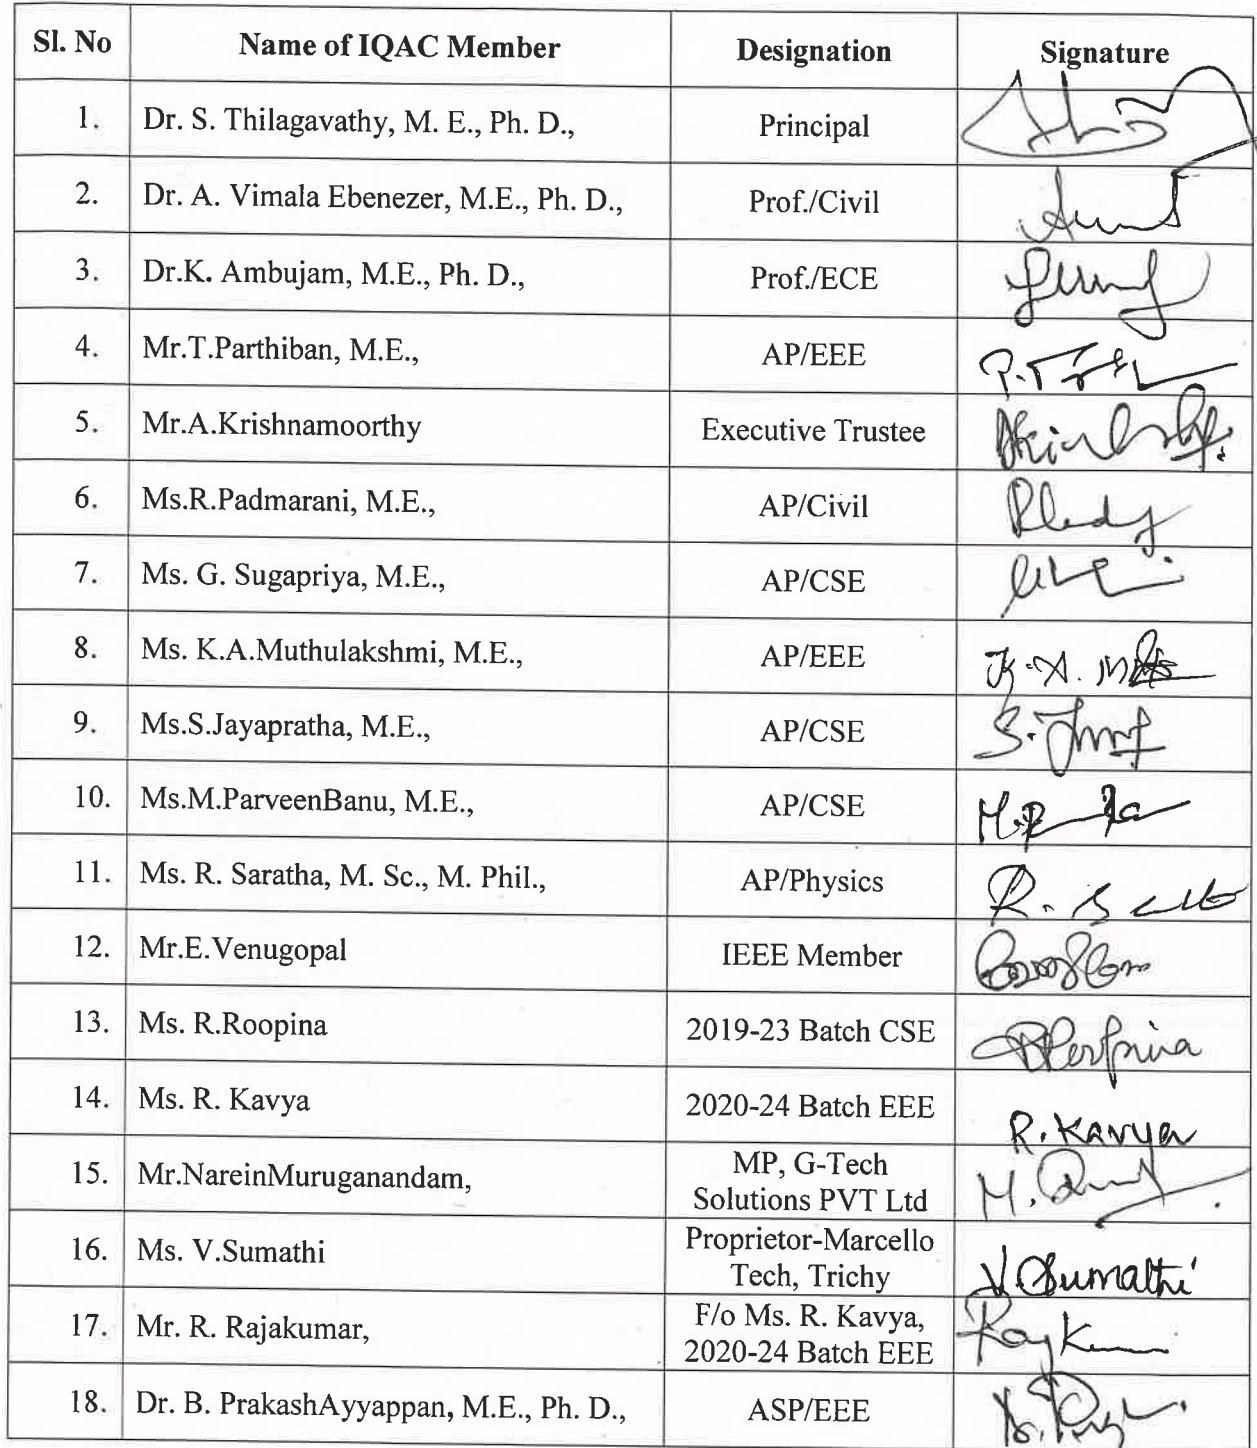 Sl. No Name of IQAC Member Designation Signature
1. Dr. S. Thilagavathy, M. E., Ph. D., Principal
2. Dr. A. Vimala Ebenezer, M.E., Ph. D., Prof./Civil
3. Dr.K. Ambujam, M.E., Ph. D., Prof./ECE
4. Mr.T.Parthiban, M.E., AP/EEE
5. Mr.A.Krishnamoorthy Executive Trustee
6. Ms.R.Padmarani, M.E., AP/Civil
7. Ms. G. Sugapriya, M.E., AP/CSE
8. Ms. K.A.Muthulakshmi, M.E., AP/EEE
9. Ms.S.Jayapratha, M.E., AP/CSE
10. Ms.M.ParveenBanu, M.E., AP/CSE
11. Ms. R. Saratha, M. Sc., M. Phil., AP/Physics
12. Mr.E.Venugopal IEEE Member
13. Ms. R.Roopina 2019-23 Batch CSE
14. Ms. R. Kavya 2020-24 Batch EEE R. Kavya
15. Mr.NareinMuruganandam, MP, G-Tech
Solutions PVT Ltd
16. Ms. V.Sumathi Proprietor-Marcello
Tech, Trichy V. Sumathi
17. Mr. R. Rajakumar, F/o Ms. R. Kavya,
2020-24 Batch EEE
18. Dr. B. PrakashAyyappan, M.E., Ph. D., ASP/EEE